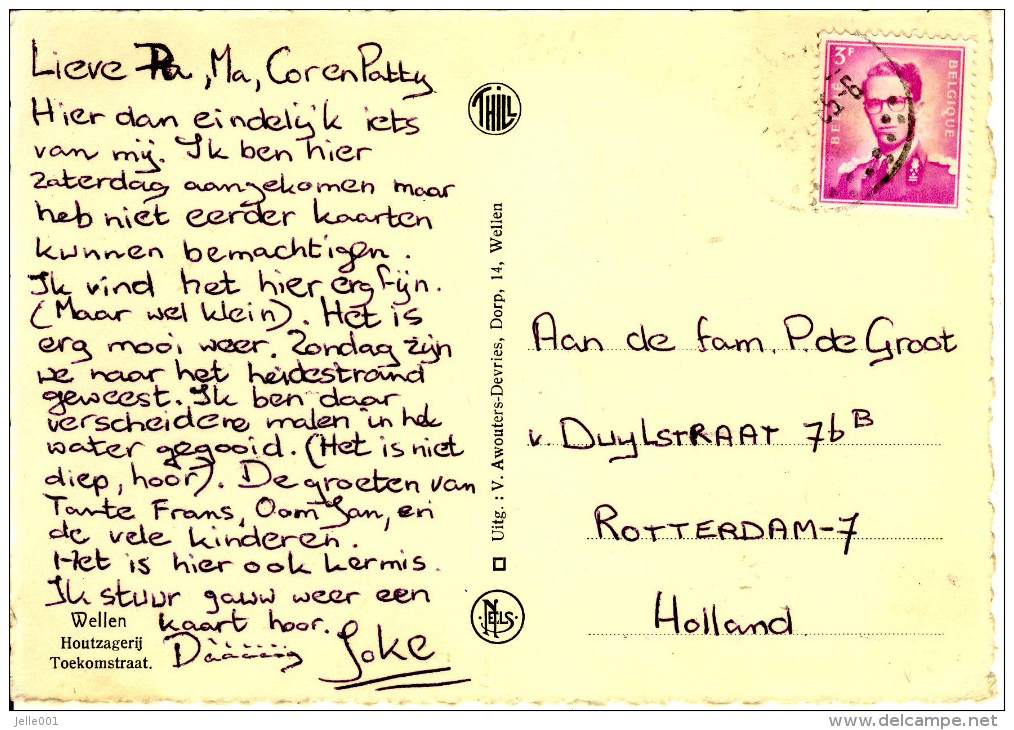 Lieve Pa, Ma, Cor en Patty
Hier dan eindelijk iets
van mij. Ik ben hier
zaterdag aangekomen maar
heb niet eerder kaarten
kunnen bemachtigen.
Ik vind het hier erg fijn.
(Maar wel klein). Het is
erg mooi weer. Zondag zijn
we naar het heidestrand
geweest. Ik ben daar
verscheidere malen in het
water gegooid. (Het is niet
diep, hoor). De groeten van
Tante Frans, Oom Jan, en
de vele kinderen.
Het is hier ook kermis.
Ik stuur gauw weer een
kaart hoor.
Dààààg Joke
Wellen
Houtzagerij
Toekomstraat.
THILL
Uitg. : V. Awouters-Devries, Dorp, 14, Wellen
NELS
3F
BELGIE
BELGIQUE
Aan de fam. P. de Groot
v. DuylSTRAAT 76B
ROTTERDAM-7
Holland
jelle001
delcampe.net